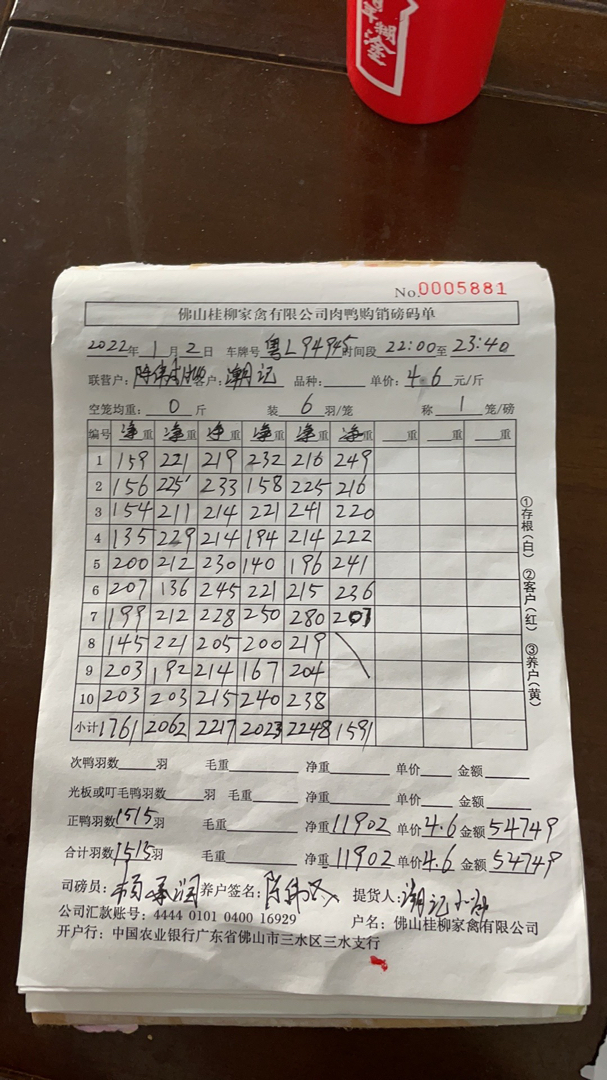 糊塗
No.0005881
佛山桂柳家禽有限公司肉鸭购销磅码单
2022年 1月 2日 车牌号 粤L94945 时间段 22:00至 23:40
联营户: 客户: 潮记 品种: 单价: 4.6 元/斤
空笼均重: 0 斤 装 6 羽/笼 称 1 笼/磅
编号 净重 净重 净重 净重 净重 净重 重 重 重
1 159 221 219 232 216 249
2 156 225 233 158 225 216
3 154 211 214 221 241 220
4 135 229 214 194 214 222
5 200 212 230 140 196 241
6 207 136 245 221 215 236
7 199 212 228 250 280 207
8 145 221 205 200 219
9 203 192 214 167 204
10 203 203 215 240 238
小计 1761 2062 2217 2023 2248 1591
①存根(白) ②客户(红) ③养户(黄)
次鸭羽数 羽 毛重 净重 单价 金额
光板或叮毛鸭羽数 羽 毛重 净重 单价 金额
正鸭羽数 1515 羽 毛重 净重 11902 单价 4.6 金额 54749
合计羽数 1515 羽 毛重 净重 11902 单价 4.6 金额 54749
司磅员: 养户签名: 提货人: 潮记
公司汇款账号: 4444 0101 0400 16929 户名: 佛山桂柳家禽有限公司
开户行: 中国农业银行广东省佛山市三水区三水支行